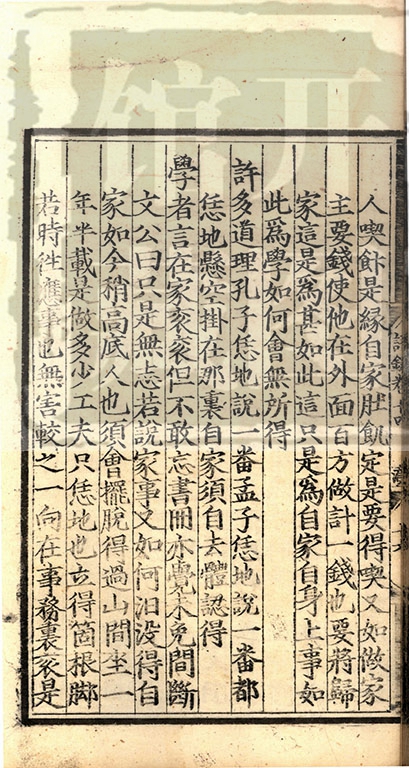 人喫飰是緣自家肚飢定是要得喫又如做家
主要錢使他在外面百方做計一錢也要將歸
家這是為甚如此這只是為自家自身上事如
此爲學如何會無所得
許多道理孔子恁地說一番孟子恁地說一番都
恁地懸空掛在那裏自家須自去體認得
學者言在家衮衮但不敢忘書冊亦覺未免間斷
文公曰只是無志若說家事又如何汩沒得自
家如今稍高底人也須會擺脫得過山間坐一
年半載是做多少工夫只恁地也立得箇根脚
若時往應事也無害較之一向在事務裏衮是